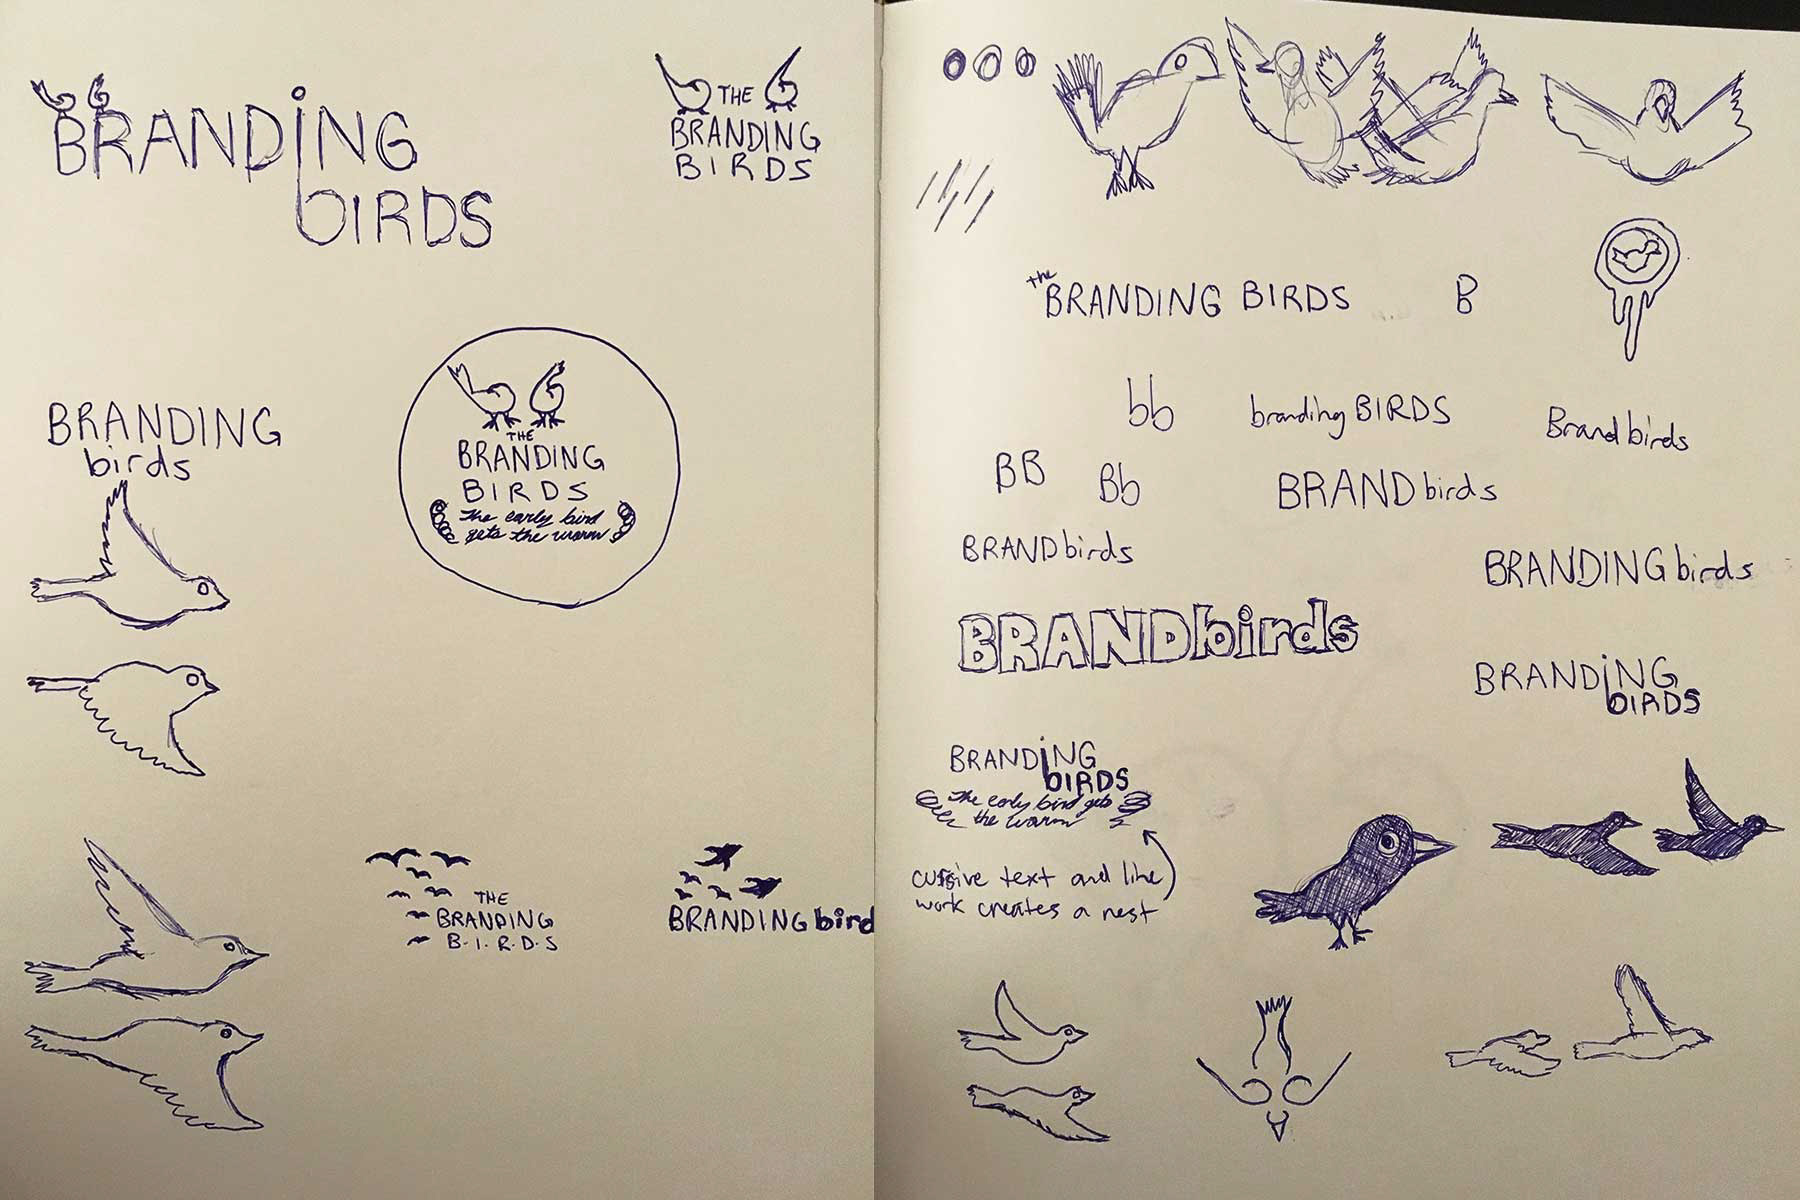 BRANDING
BIRDS
THE
BRANDING
BIRDS
BRANDING
birds
THE
BRANDING
BIRDS
The early bird
gets the worm
THE
BRANDING
B·I·R·D·S
BRANDING bird
the
BRANDING BIRDS
B
bb
branding BIRDS
Brand birds
BB
Bb
BRAND birds
BRAND birds
BRANDING birds
BRANDbirds
BRANDING
BIRDS
BRANDING
BIRDS
The early bird gets
the worm
cursive text and line
work creates a nest